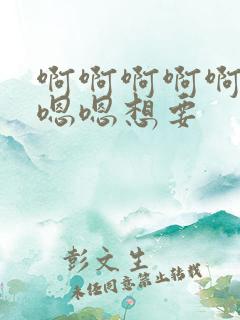 啊啊啊啊啊
嗯嗯想要
彭文生
未经同意禁止转载